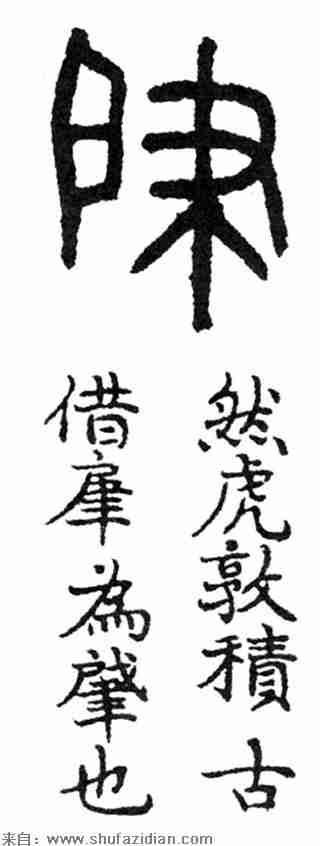 肁
然虎敦積古
借肁為肈也
来自：www.shufazidian.com